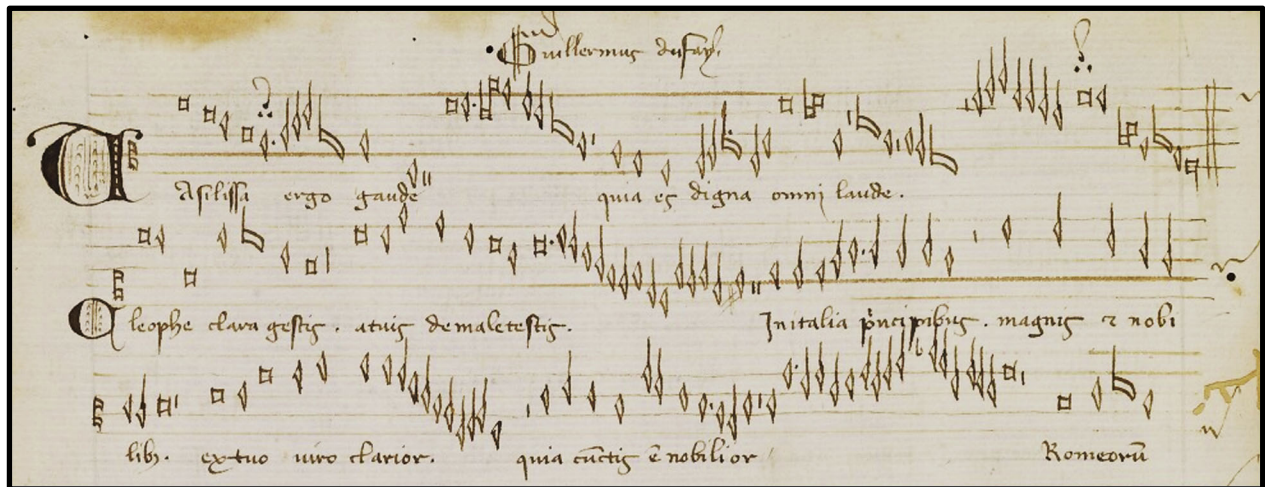 Guillermus dufay.
Vasilissa ergo gaude quia es digna omni laude.
Cleophe clara gestis. atuis demaletestis. Initalia pͥncipibus. magnis ⁊ nobi
libꝫ. extuo uiro clarior. quia cūctis ē nobilior Romeorū